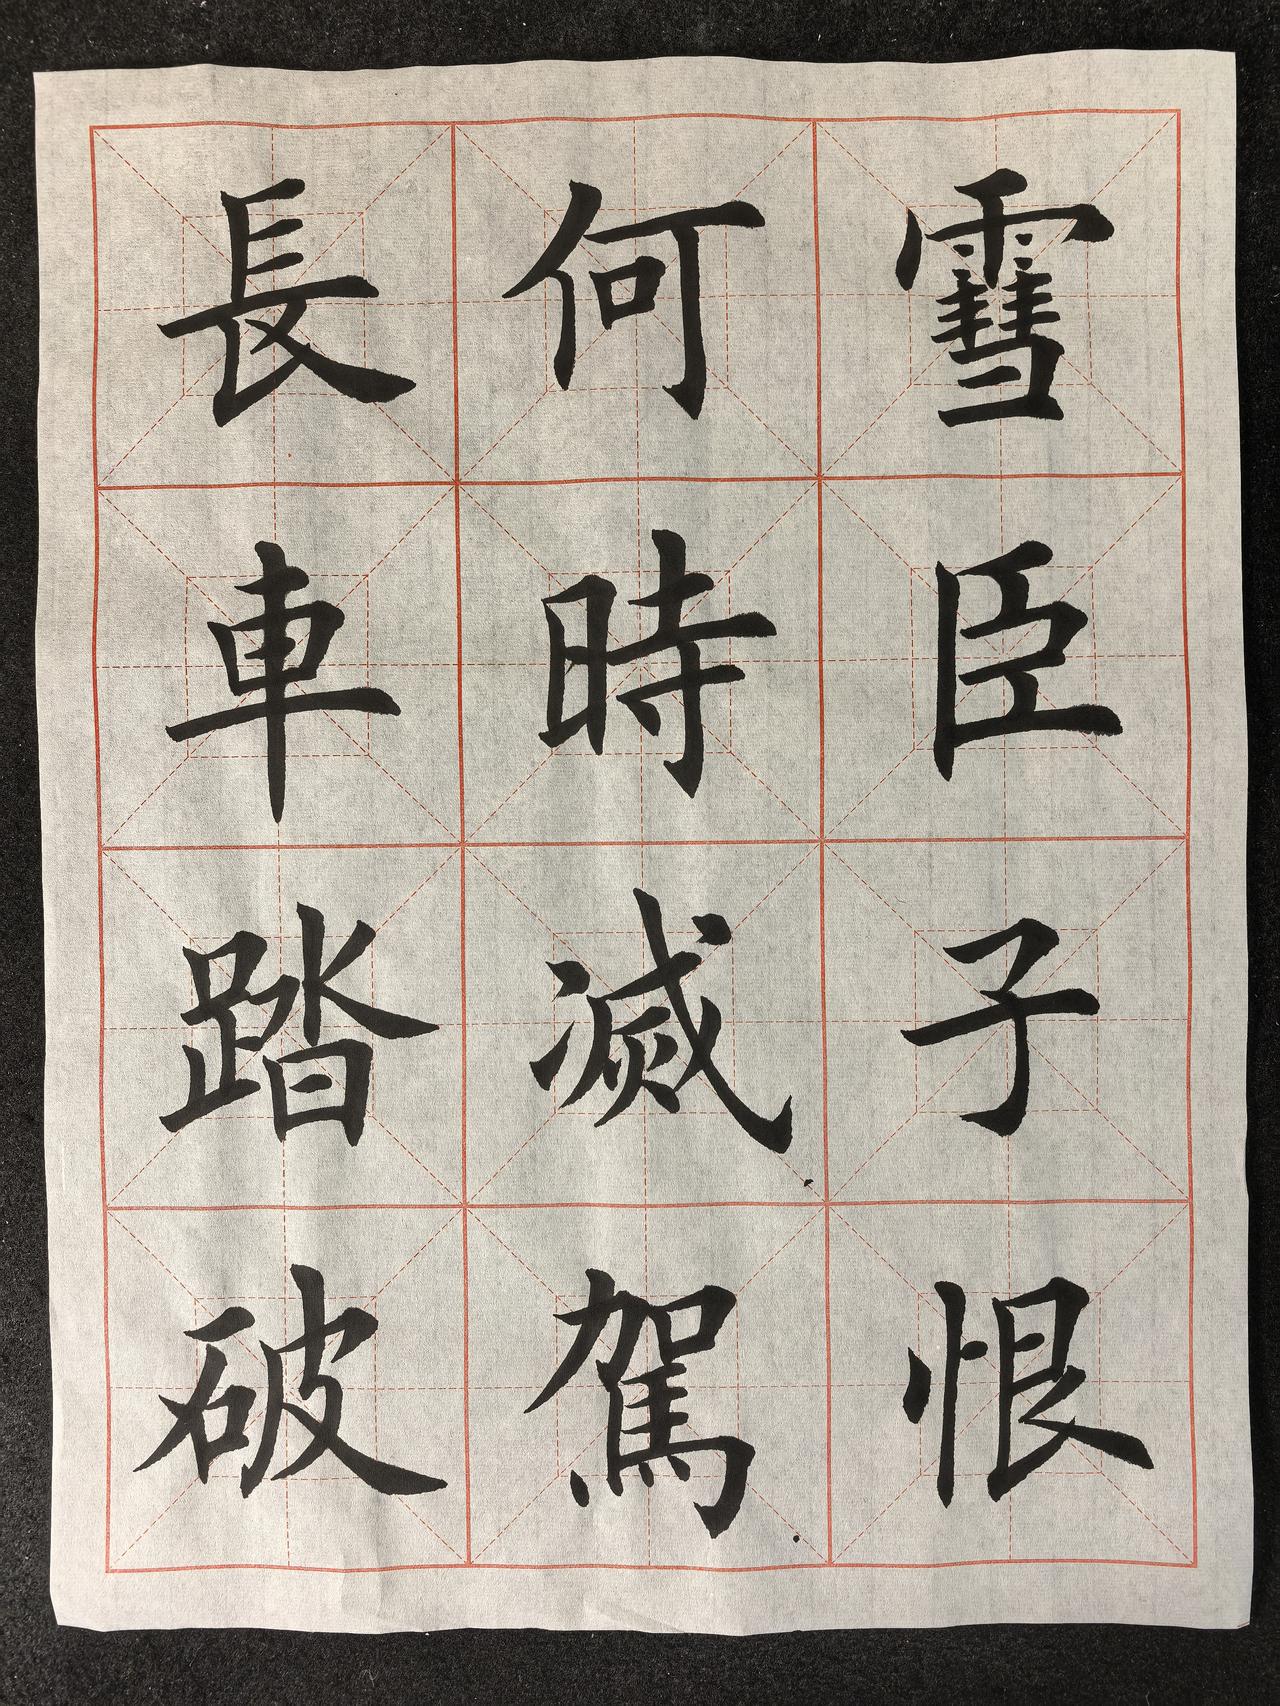 雪臣子恨
何時滅駕
長車踏破